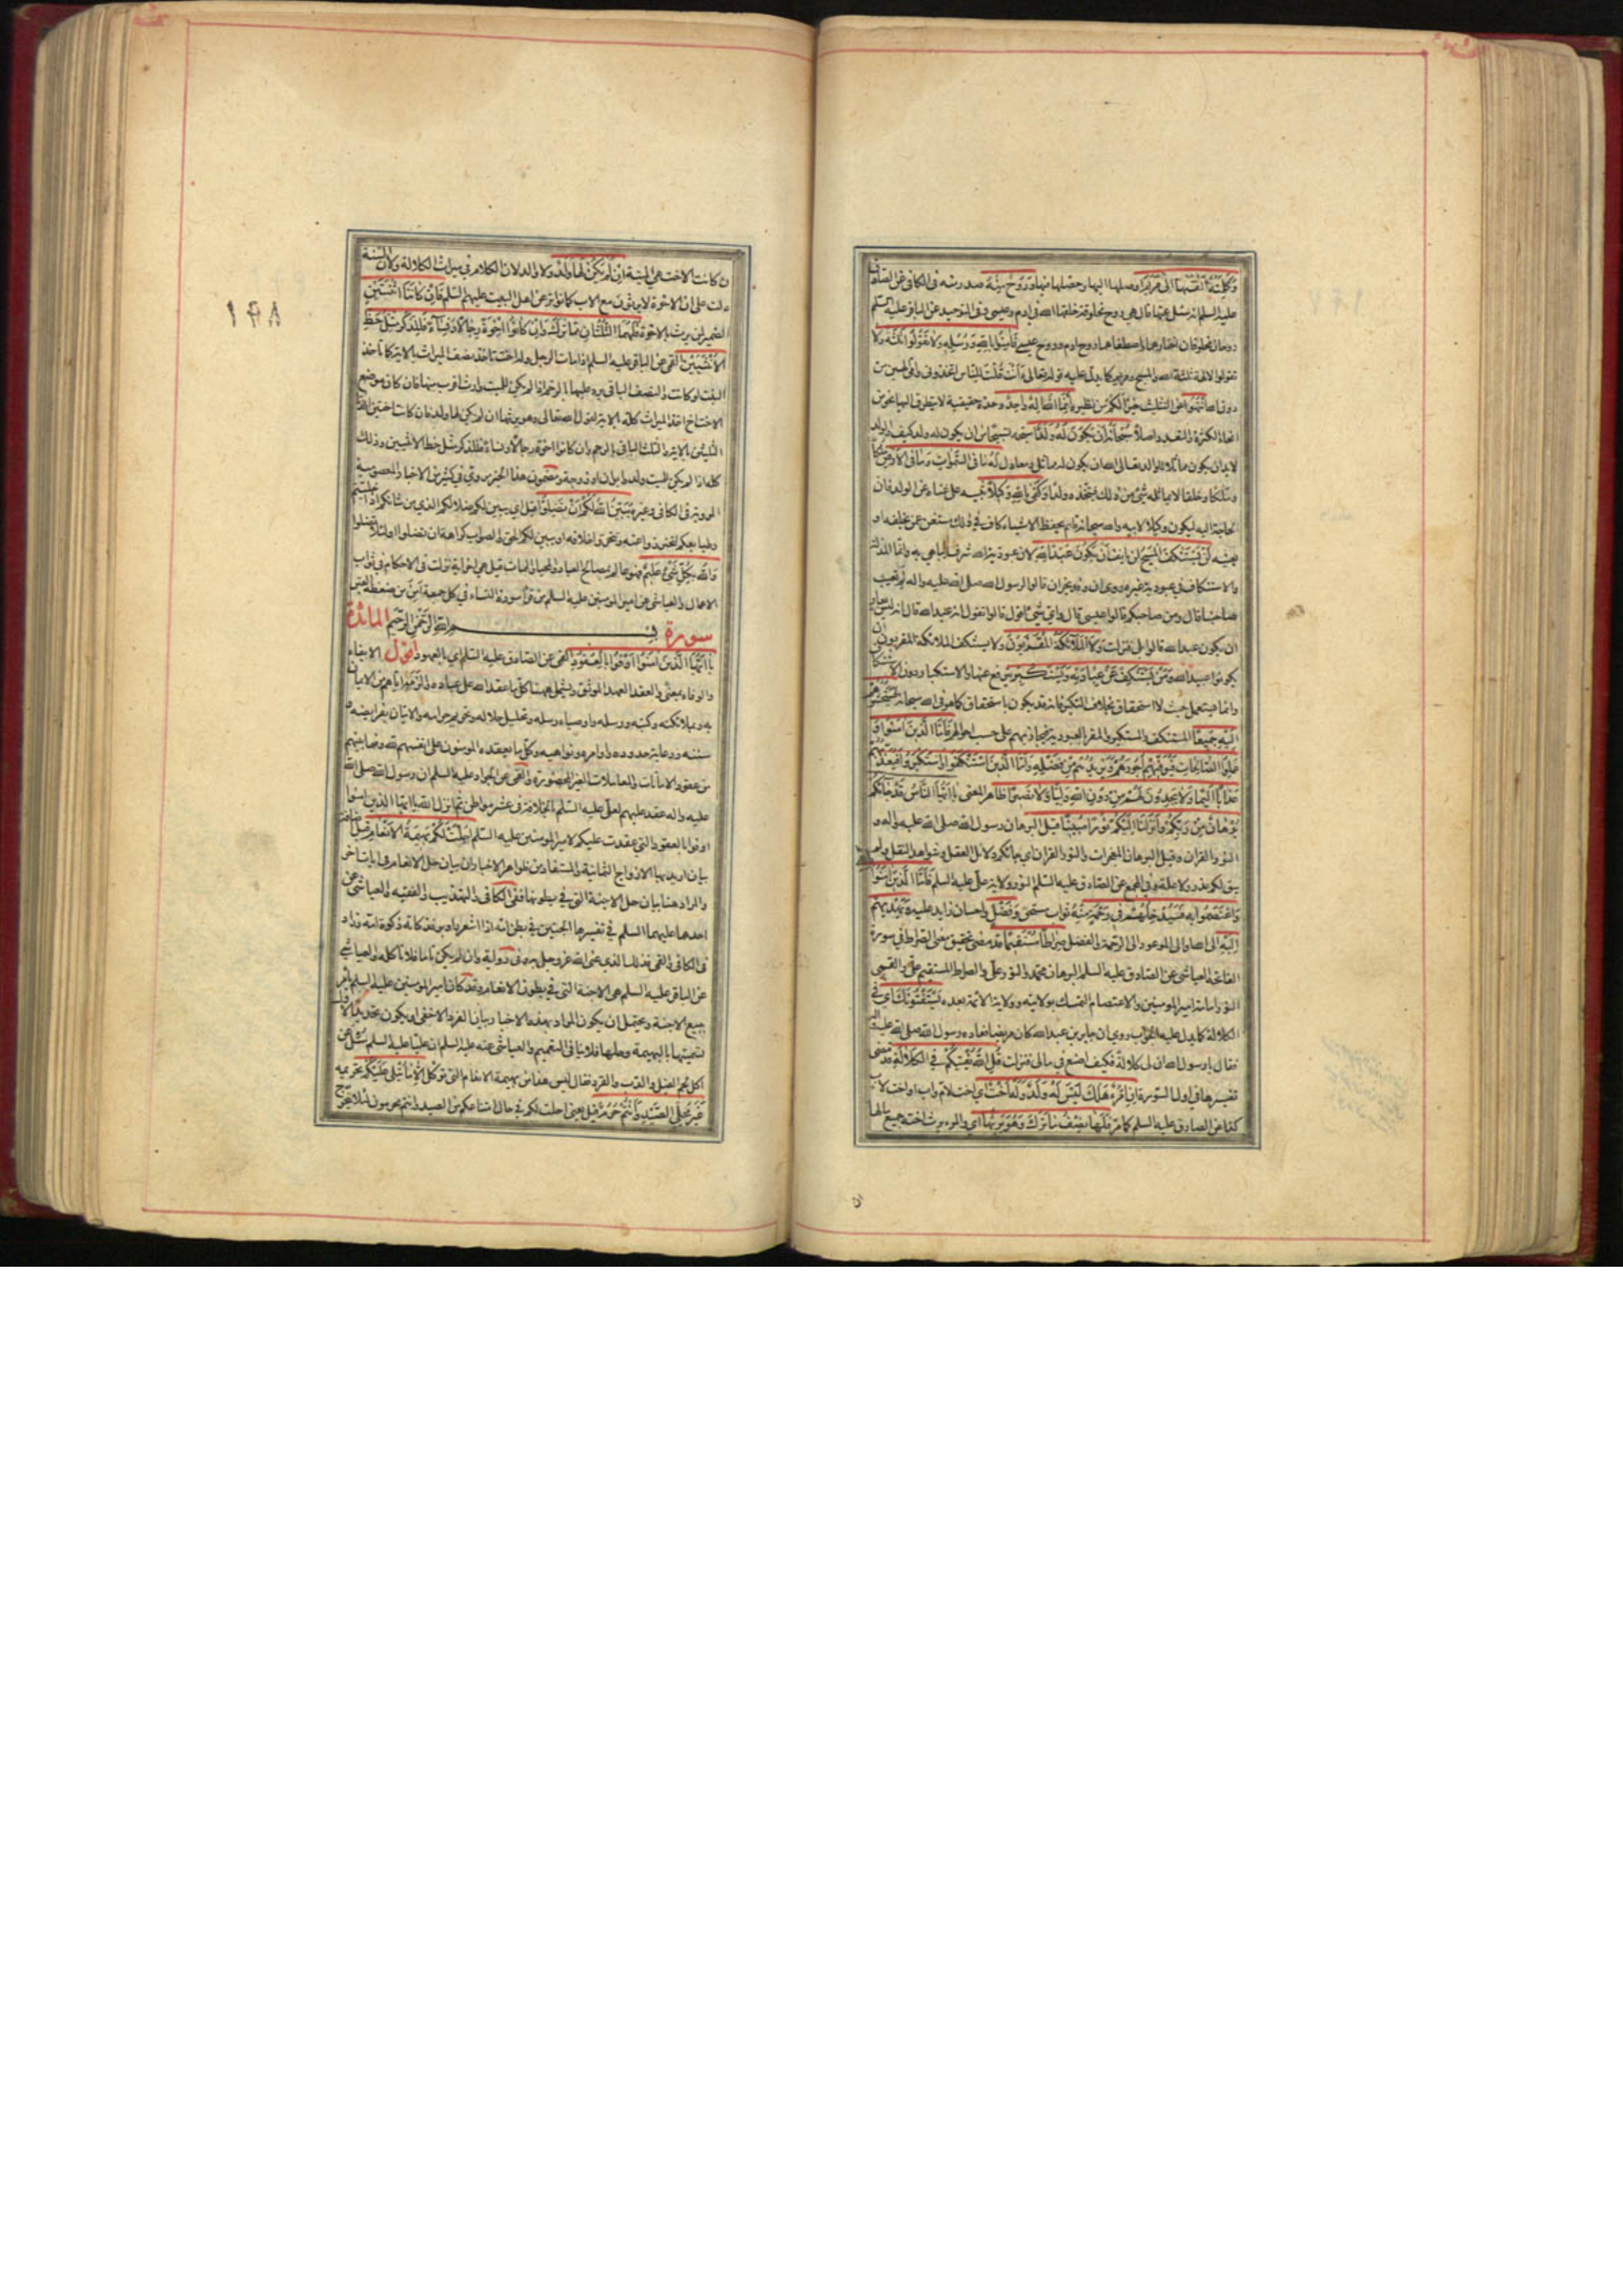 وَكَلِمَتُهُ أَلْقَيهَا إِلَى مَرْيَمَ أوصلها اليها وحصلها فيها وَرُوحٌ مِنْهُ صدرت منه في الكافي عن الصادق
عليه السلم انه سئل عنها قال هي روح مخلوقة خلقها الله في ادم وعيسى وفي التوحيد عن الباقر عليه السلم
روحان مخلوقان اختارهما واصطفاهما روح ادم وروح عيسى فَآمِنُوا بِاللَّهِ وَرُسُلِهِ وَلَا تَقُولُوا ثَلَثَةٌ ولا
تقولوا الالهة ثلثة الله والمسيح ومريم كما يدل عليه قوله تعالى ءَأَنْتَ قُلْتَ لِلنَّاسِ اتخذوني وامي الهين من
دون الله انْتَهُوا عن التثليث خَيْرًا لَكُمْ مر نظيره إِنَّمَا اللَّهُ إِلَهٌ وَاحِدٌ وحدة حقيقية لا يتطرق اليها نحو من
انحاء الكثرة والتعدد اصلا سُبْحَانَهُ أَنْ يَكُونَ لَهُ وَلَدٌ سبحه تسبيحا من ان يكون له ولد كيف والولد
لا بد ان يكون مماثلا للوالد تعالى الله ان يكون له مماثل ومعادل لَهُ مَا فِي السَّمَوَاتِ وَمَا فِي الْأَرْضِ ملكا
وملكا وخلقا لا يماثله شئ من ذلك ليتخذه ولدا وَكَفَى بِاللَّهِ وَكِيلًا تنبيه على غناه عن الولد فان
الحاجة اليه ليكون وكيلا لابيه والله سبحانه قائم بحفظ الاشياء كاف في ذلك مستغن عن يخلفه او
يعينه لَنْ يَسْتَنْكِفَ الْمَسِيحُ لن يانف أَنْ يَكُونَ عَبْدًا لِلَّهِ لان عبوديته لله شرف يباهي به وانما المذلة
والاستنكاف في عبودية غيره وروى ان وفد نجران قالوا لرسول الله صلى الله عليه واله لم تعيب
صاحبنا قال ومن صاحبكم قالوا عيسى قال واي شيء اقول قالوا تقول انه عبد الله قال انه ليس بعار
ان يكون عبد الله قالوا بلى فنزلت وَلَا الْمَلَائِكَةُ الْمُقَرَّبُونَ ولا يستنكف الملائكة المقربون ان
يكونوا عبيدا لله وَمَنْ يَسْتَنْكِفْ عَنْ عِبَادَتِهِ وَيَسْتَكْبِرْ يترفع عنها والاستكبار دون الاستنكاف
وانما يستعمل حيث لا استحقاق بخلاف التكبر فانه قد يكون باستحقاق كما هو في الله سبحانه فَسَيَحْشُرُهُمْ
إِلَيْهِ جَمِيعًا المستنكف والمستكبر والمقر بالعبودية فيجازيهم على حسب احوالهم فَأَمَّا الَّذِينَ آمَنُوا وَ
عَمِلُوا الصَّالِحَاتِ فَيُوَفِّيهِمْ أُجُورَهُمْ وَيَزِيدُهُمْ مِنْ فَضْلِهِ وَأَمَّا الَّذِينَ اسْتَنْكَفُوا وَاسْتَكْبَرُوا فَيُعَذِّبُهُمْ
عَذَابًا أَلِيمًا وَلَا يَجِدُونَ لَهُمْ مِنْ دُونِ اللَّهِ وَلِيًّا وَلَا نَصِيرًا ظاهر المعنى يَا أَيُّهَا النَّاسُ قَدْ جَاءَكُمْ
بُرْهَانٌ مِنْ رَبِّكُمْ وَأَنْزَلْنَا إِلَيْكُمْ نُورًا مُبِينًا قيل البرهان رسول الله صلى الله عليه واله و
النور القران وقيل البرهان المعجزات والنور القران اي جائكم دلائل العقل وشواهد النقل ولم
يبق لكم عذر ولا علة وفي المجمع عن الصادق عليه السلم النور ولاية علي عليه السلم فَأَمَّا الَّذِينَ آمَنُوا
وَاعْتَصَمُوا بِهِ فَسَيُدْخِلُهُمْ فِي رَحْمَةٍ مِنْهُ ثواب مستحق وَفَضْلٍ واحسان زايد عليه وَيَهْدِيهِمْ
إِلَيْهِ الى الله او الى الموعود الى الرحمة والفضل صِرَاطًا مُسْتَقِيمًا قد مضى تحقيق معنى الصراط في سورة
الفاتحة العياشي عن الصادق عليه السلم البرهان محمد والنور علي والصراط المستقيم علي والقمي
النور امامة امير المومنين والاعتصام التمسك بولايته وولاية الائمة بعده يَسْتَفْتُونَكَ اي في
الكلالة كما يدل عليه الجواب روي ان جابر بن عبد الله كان مريضا فعاده رسول الله صلى الله عليه واله
فقال يا رسول الله ان لي كلالة فكيف اصنع في مالي فنزلت قُلِ اللَّهُ يُفْتِيكُمْ فِي الْكَلَالَةِ قد مضى
تفسيرها في اول السورة إِنِ امْرُؤٌ هَلَكَ لَيْسَ لَهُ وَلَدٌ وَلَهُ أُخْتٌ اي اخت لام واب او اخت لاب
كذا عن الصادق عليه السلم كما مر فَلَهَا نِصْفُ مَا تَرَكَ وَهُوَ يَرِثُهَا اي والمرء يرث اخته جميع مالها
ان
١٩٨
ان كانت الاخت هي الميتة إِنْ لَمْ يَكُنْ لَهَا وَلَدٌ ولا والد لان الكلام في ميراث الكلالة ولان السنة
دلت على ان الاخوة لا يرثون مع الاب كما تواتر عن اهل البيت عليهم السلم فَإِنْ كَانَتَا اثْنَتَيْنِ
الضمير لمن يرث بالاخوة فَلَهُمَا الثُّلُثَانِ مِمَّا تَرَكَ وَإِنْ كَانُوا إِخْوَةً رِجَالًا وَنِسَاءً فَلِلذَّكَرِ مِثْلُ حَظِّ
الْأُنْثَيَيْنِ القمي عن الباقر عليه السلم اذا مات الرجل وله اخت تاخذ نصف الميراث بالاية كما تاخذ
البنت لو كانت والنصف الباقي يرد عليها بالرحم اذا لم يكن للميت وارث اقرب منها فان كان موضع
الاخت اخ اخذ الميراث كله بالاية لقول الله تعالى وهو يرثها ان لم يكن لها ولد فان كانتا اختين اخذتا
الثلثين بالاية والثلث الباقي بالرحم وان كانوا اخوة رجالا ونساء فللذكر مثل حظ الانثيين وذلك
كله اذا لم يكن للميت ولد او ابوان او زوجة ومضمون هذا الخبر مروي في كثير من الاخبار المعصومية
المروية في الكافي وغيره يُبَيِّنُ اللَّهُ لَكُمْ أَنْ تَضِلُّوا قيل اي يبين لكم ضلالكم الذي من شانكم اذا خليتم
وطباعكم لتحترزوا عنه وتتحروا خلافه او يبين لكم الحق والصواب كراهة ان تضلوا او لئلا تضلوا
وَاللَّهُ بِكُلِّ شَيْءٍ عَلِيمٌ فهو عالم بمصالح العباد والمحيا والممات قيل هي اخر اية نزلت في الاحكام في ثواب
الاعمال والعياشي عن امير المومنين عليه السلم من قرأ سورة النساء في كل جمعة أمن من ضغطة القبر
سورة بسم الله الرحمن الرحيم المائدة
يَا أَيُّهَا الَّذِينَ آمَنُوا أَوْفُوا بِالْعُقُودِ القمي عن الصادق عليه السلم اي بالعهود اقول الايفاء
والوفاء بمعنى والعقد العهد الموثق ويشمل ههنا كل ما عقد الله على عباده والزمه اياهم من الايمان
به وبملائكته وكتبه ورسله واوصياء رسله وتحليل حلاله وتحريم حرامه والاتيان بفرايضه و
سننه ورعاية حدوده واوامره ونواهيه وكل ما يعقده المومنون على انفسهم لله وفيما بينهم
من عقود الامانات والمعاملات الغير المحظورة والقمي عن الجواد عليه السلم ان رسول الله صلى الله
عليه واله عقد عليهم لعلي عليه السلم بالخلافة في عشر مواطن ثم انزل الله يا ايها الذين امنوا
اوفوا بالعقود التي عقدت عليكم لامير المومنين عليه السلم أُحِلَّتْ لَكُمْ بَهِيمَةُ الْأَنْعَامِ قيل
بيان اريد بها الازواج الثمانية والمستفاد من ظواهر الاخبار ان بيان حل الانعام في ايات اخر
والمراد هنا بيان حل الاجنة التي في بطونها ففي الكافي والتهذيب والفقيه والعياشي عن
احدهما عليهما السلم في تفسيرها الجنين في بطن امه اذا اشعر واوبر فذكاته ذكوة امه وزاد
في الكافي والقمي فذلك الذي عنى الله عز وجل به وفي رواية وان لم يكن تاما فلا تاكله والعياشي
عن الباقر عليه السلم هي الاجنة التي في بطون الانعام وقد كان امير المومنين عليه السلم يامر
ببيع الاجنة ويحتمل ان يكون المراد بهذه الاخبار بيان الفرد الاخفى او يكون تحديدا
تسميتها بالبهيمة وحلها فلا ينافي التعميم والعياشي عنه عليه السلم ان عليا عليه السلم سئل عن
اكل لحم الفيل والدب والقرد فقال ليس هذا من بهيمة الانعام التي تؤكل إِلَّا مَا يُتْلَى عَلَيْكُمْ تحريمه
غَيْرَ مُحِلِّي الصَّيْدِ وَأَنْتُمْ حُرُمٌ قيل يعني احلت لكم في حال امتناعكم من الصيد وانتم محرمون لئلا يتحرج